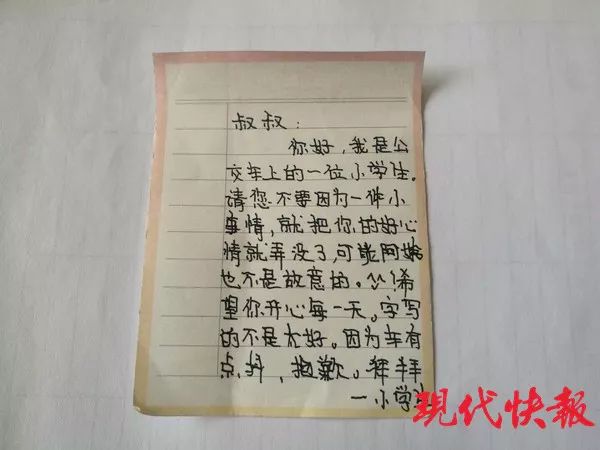 叔叔:
你好,我是公
交车上的一位小学生.
请您不要因为一件小
事情,就把你的好心
情就弄没了,可能阿姨
也不是故意的。^^!希
望你开心每一天。字写
的不是太好。因为车有
点抖,抱歉。拜拜
一小学生
现代快報